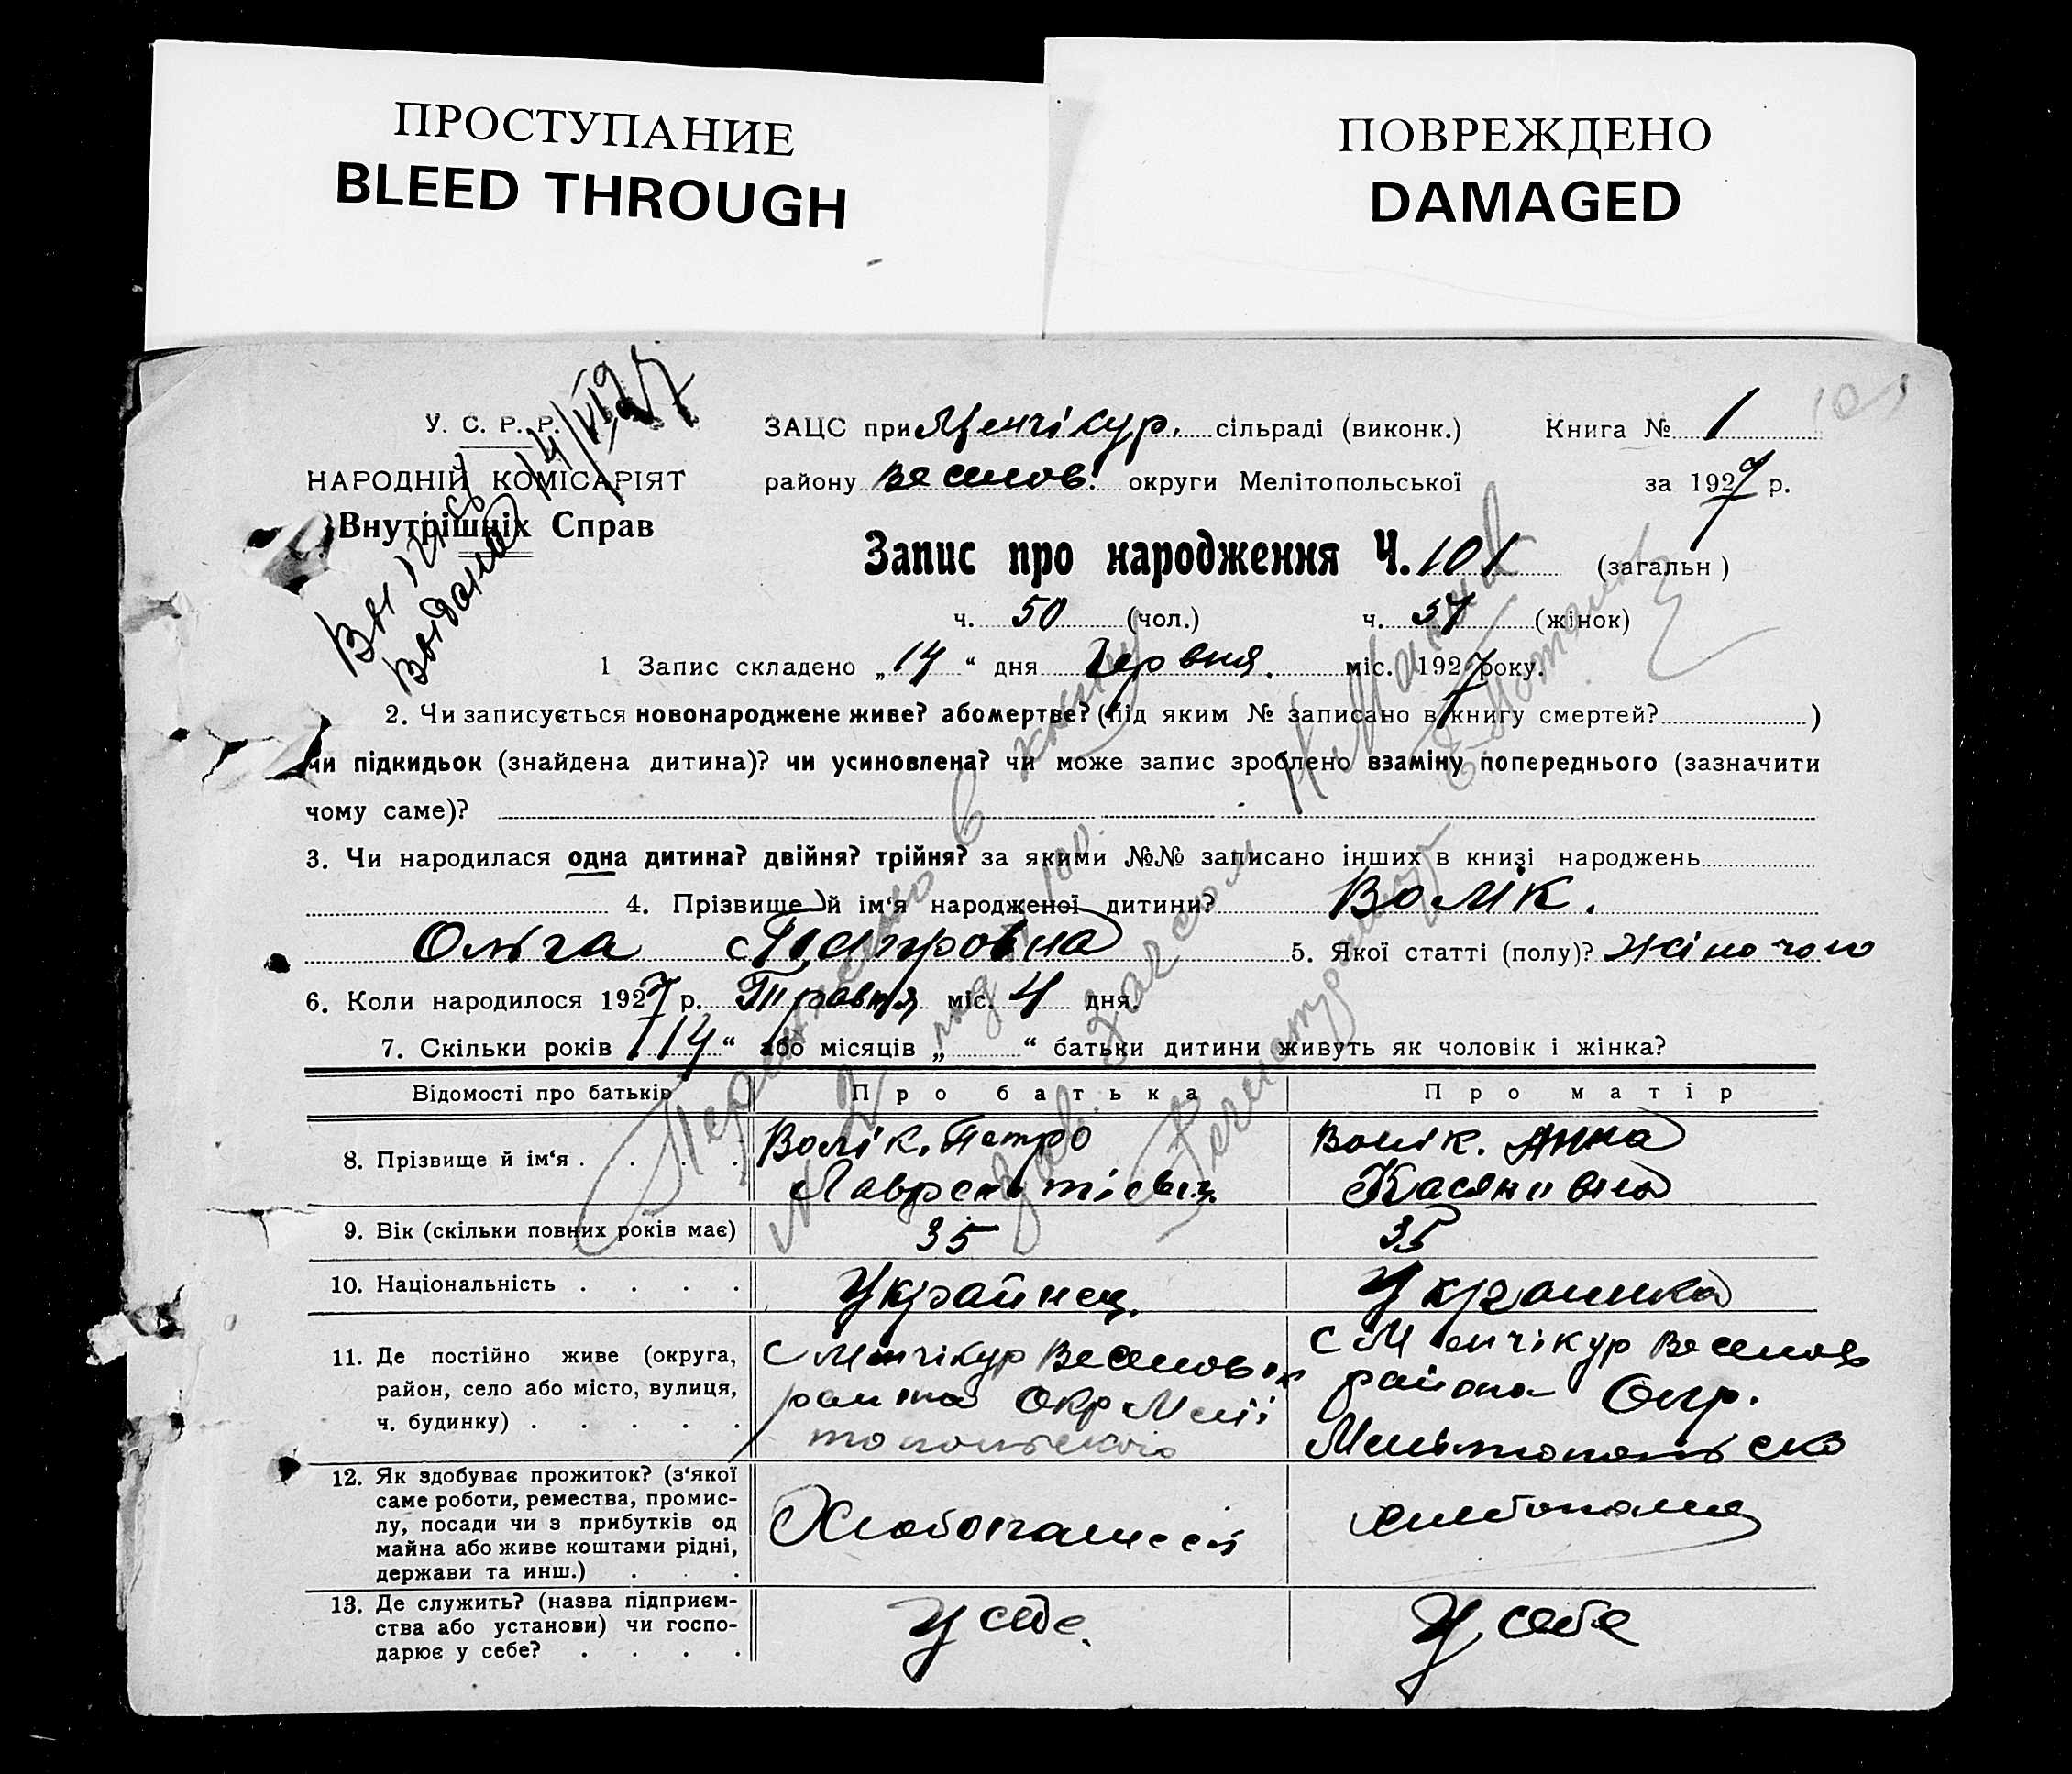 ПРОСТУПАНИЕ
BLEED THROUGH
ПОВРЕЖДЕНО
DAMAGED
У. С. Р. Р.
НАРОДНІЙ КОМІСАРІЯТ
Внутрішніх Справ
Видана 14/VI 27
ЗАЦС при Менчікур. сільраді (виконк.) Книга № 1
району Веселов. округи Мелітопольської за 1927 р.
Запис про народження Ч. 101 (загальн)
ч. 50 (чол.) ч. 51 (жінок)
1 Запис складено „14“ дня Червня. міс. 1927 року.
2. Чи записується новонароджене живе? або мертве? (під яким № записано в книгу смертей? )
чи підкидьок (знайдена дитина)? чи усиновлена? чи може запис зроблено взаміну попереднього (зазначити
чому саме)?
3. Чи народилася одна дитина? двійня? трійня? за якими №№ записано інших в книзі народжень
4. Прізвище й ім‘я народженої дитини? Волік.
Ольга Петровна 5. Якої статті (полу)? жіночого
6. Коли народилося 1927 р. Травня міс. 4 дня.
7. Скільки років „14“ або місяців „ “ батьки дитини живуть як чоловік і жінка?
Відомості про батьків Про батька Про матір
8. Прізвище й ім‘я . . . . Волік. Петро Волік. Анна
Лаврентієвич Касяновна
9. Вік (скільки повних років має) 35 35
10. Національність . . . . Українец. Українка
11. Де постійно живе (округа, с Менчікур Веселов с Менчікур Веселов
район, село або місто, вулиця, района Окр Мелі района Окр.
ч. будинку) . . . . . топольского Мелитопольско
12. Як здобуває прожиток? (з‘якої
саме роботи, ремества, промис-
лу, посади чи з прибутків од
майна або живе коштами рідні,
держави та инш.) . . .
13. Де служить? (назва підприєм- У себе. У себе
ства або установи) чи госпо-
дарює у себе? . . . .
Перенесено в книгу